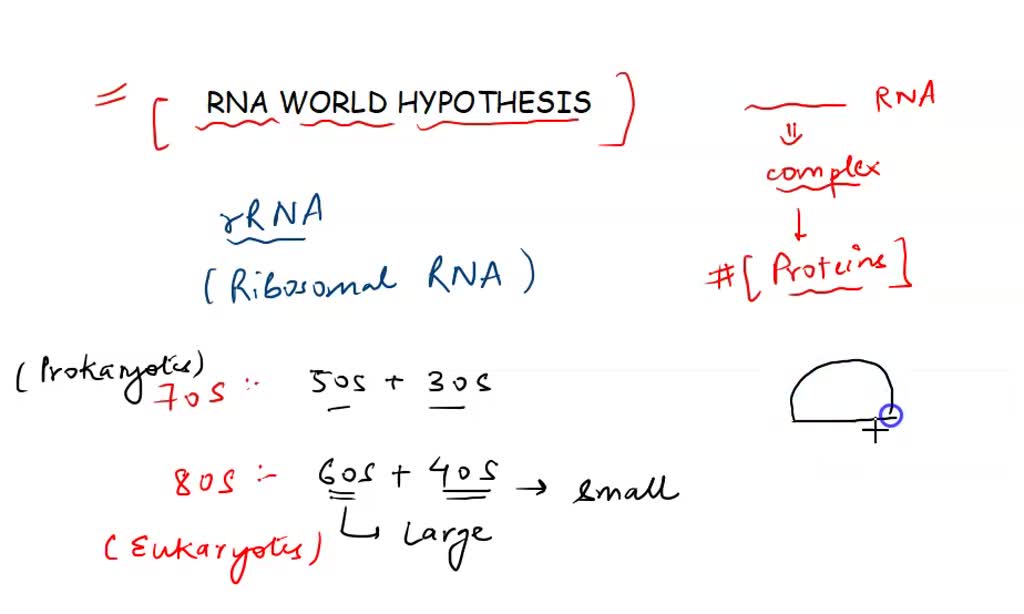 = [ RNA WORLD HYPOTHESIS ]
RNA
⇓
complex
↓
# [ Proteins ]
rRNA
( Ribosomal RNA )
( Prokaryotes)
70S :- 50S + 30S
80S :- 60S + 40S → small
↳ Large
( Eukaryotes)